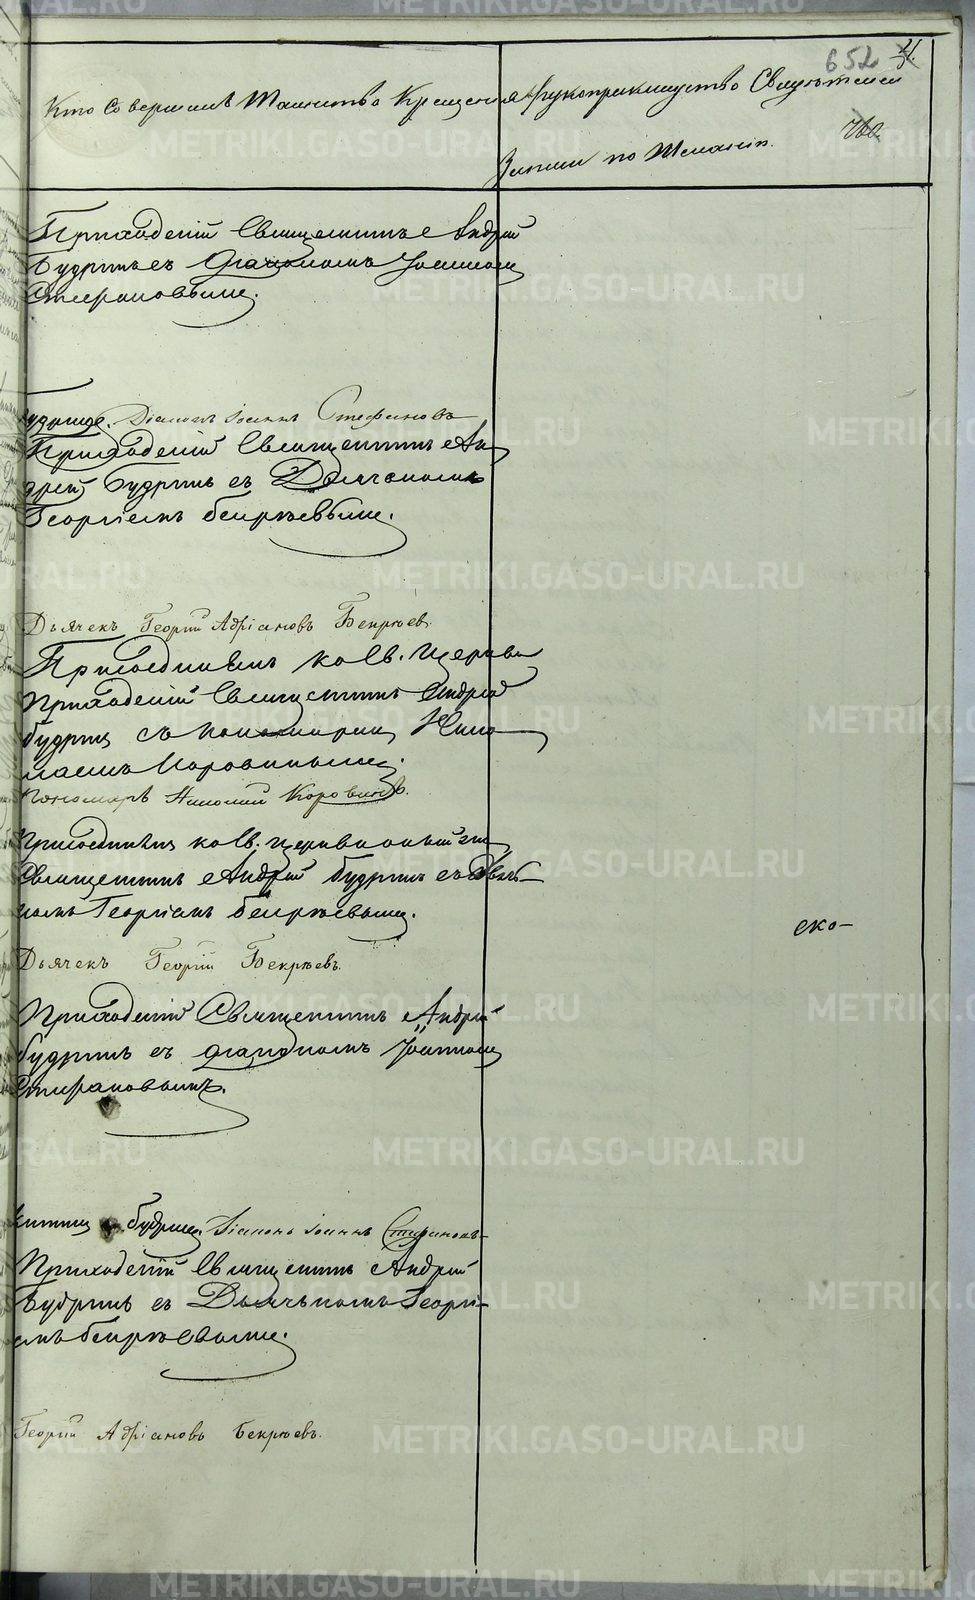 652
Кто совершалъ Таинство Крещенія
Рукоприкладство Свидѣтелей
Записи по желанію.
Приходскій Священникъ Андрей
Будринъ съ Діакономъ Іоанномъ
Стефановымъ.
Будринъ. Діаконъ Іоаннъ Стефановъ
Приходскій Священникъ Ан
дрей Будринъ съ Дьячкомъ
Георгіемъ Бекрѣевымъ.
Дьячекъ Георгій Адріановъ Бекрѣев.
Присоединялъ ко Св. Церкви
Приходскій Священникъ Андрей
Будринъ съ пономаремъ Нико
лаемъ Коровинымъ.
Пономарь Николай Коровинъ.
Присоединялъ ко Св. Церкви
Священникъ Андрей Будринъ съ Дьяч
комъ Георгіемъ Бекрѣевымъ.
еко-
Дьячекъ Георгій Бекрѣевъ.
Приходскій Священникъ Андрей
Будринъ съ діакономъ Іоанномъ
Стефановымъ.
Будринъ. Діаконъ Іоаннъ Стефановъ
Приходскій Священникъ Андрей
Будринъ съ Дьячкомъ Георгі
емъ Бекрѣевымъ.
Георгій Адріановъ Бекрѣевъ.
METRIKI.GASO-URAL.RU